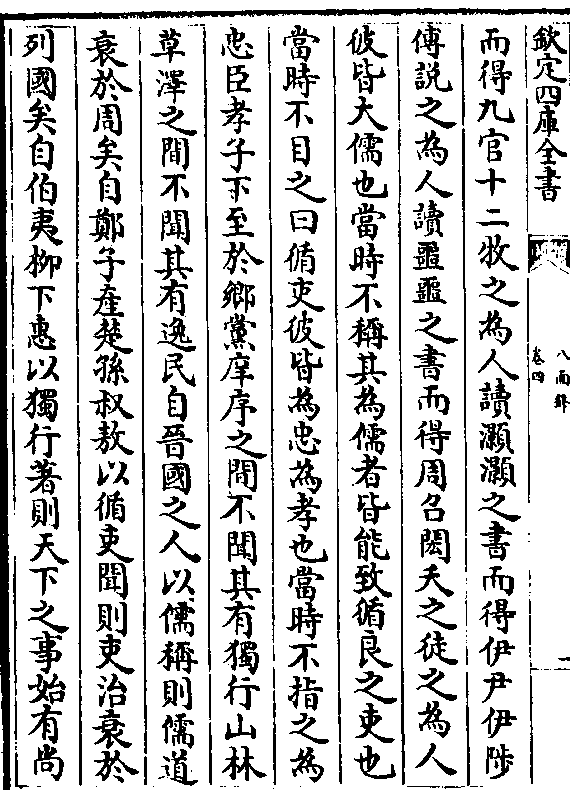 欽定四庫全書
八面鋒
卷四
一
而得九官十二牧之為人讀灝灝之書而得伊尹伊陟
傅説之為人讀噩噩之書而得周召閎夭之徒之為人
彼皆大儒也當時不稱其為儒者皆能致循良之吏也
當時不目之曰循吏彼皆為忠為孝也當時不指之為
忠臣孝子下至於鄉黨庠序之間不聞其有獨行山林
草澤之間不聞其有逸民自晉國之人以儒稱則儒道
衰於周矣自鄭子產楚孫叔敖以循吏聞則吏治衰於
列國矣自伯夷柳下惠以獨行著則天下之事始有尚